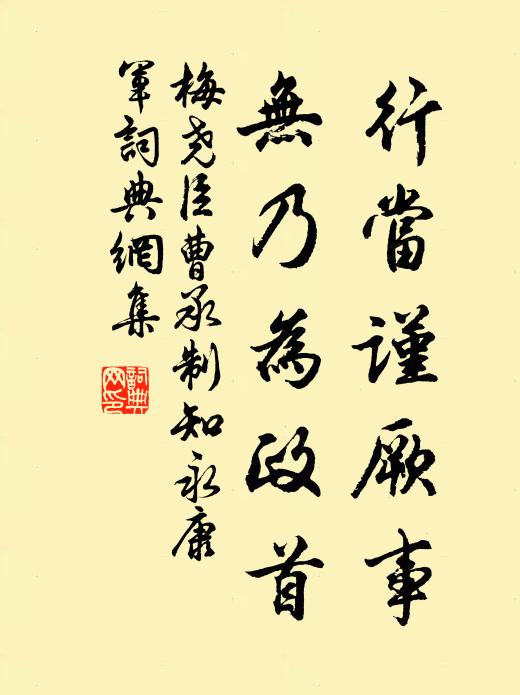 行當謹厥事
無乃為政首
梅堯臣曹承制知永康
軍詞典網集
詞典
网印